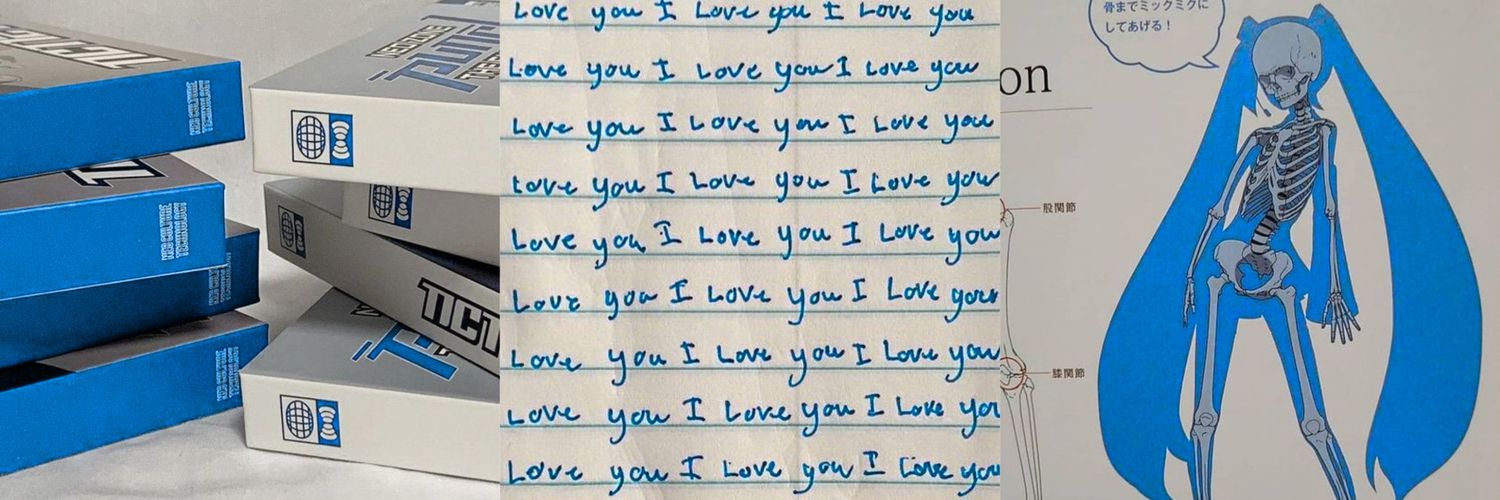 TICT
Love you I Love you I Love you
Love you I Love you I Love you
Love you I Love you I Love you
Love you I Love you I Love you
Love you I Love you I Love you
Love you I Love you I Love you
Love you I Love you I Love you
Love you I Love you I Love you
Love you I Love you I Love you
骨までミックミクに
してあげる！
on
股関節
膝関節